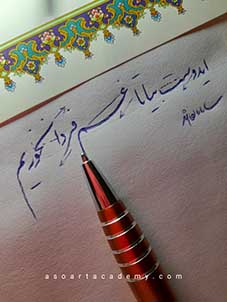 ای دوست بیا تا غم فردا نخوریم
asoartacademy.com